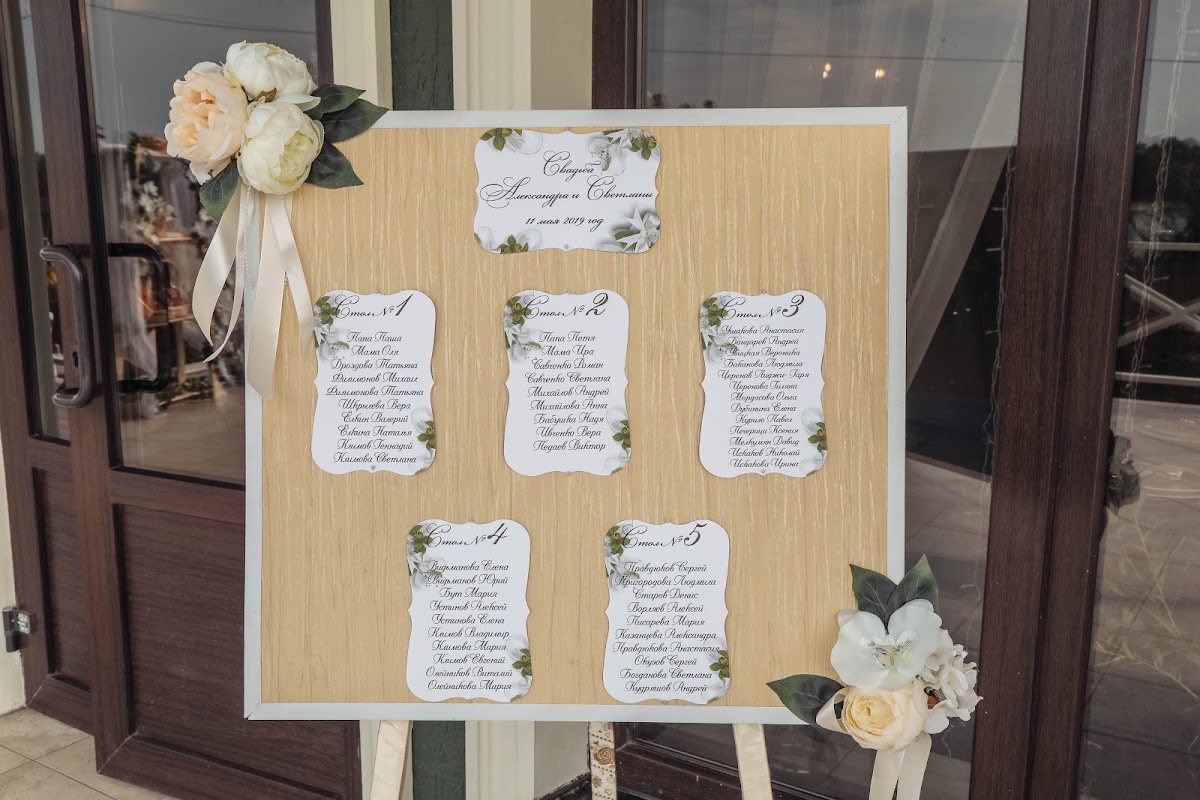 Свадьба
Александра и Светланы
11 мая 2019 год
Стол №1
Папа Паша
Мама Оля
Дроздова Татьяна
Филимонов Михаил
Филимонова Татьяна
Шкрылева Вера
Елкин Валерий
Елкина Наталья
Климов Геннадий
Климова Светлана
Стол №2
Папа Петя
Мама Ира
Савченко Роман
Савченко Светлана
Михайлов Андрей
Михайлова Анна
Бабушка Надя
Ивченко Вера
Педаев Виктор
Стол №3
Ушакова Анастасия
Бондарев Андрей
Вероника
Баканова Людмила
Церенов
Церенова
Мордасова Ольга
Дубинина Елена
Курило Павел
Печерица Ксения
Мелкумян Давид
Искаков Николай
Искакова Ирина
Стол №4
Видьманова Елена
Видьманов Юрий
Бут Мария
Устинов Алексей
Устинова Елена
Климов Владимир
Климова Мария
Климов Евгений
Олейников Виталий
Олейникова Мария
Стол №5
Правдюков Сергей
Пригородова Людмила
Старов Денис
Ворляев Алексей
Писарева Мария
Казанцева Александра
Правдюкова Анастасия
Окузов Сергей
Богданова Светлана
Кудряшов Андрей